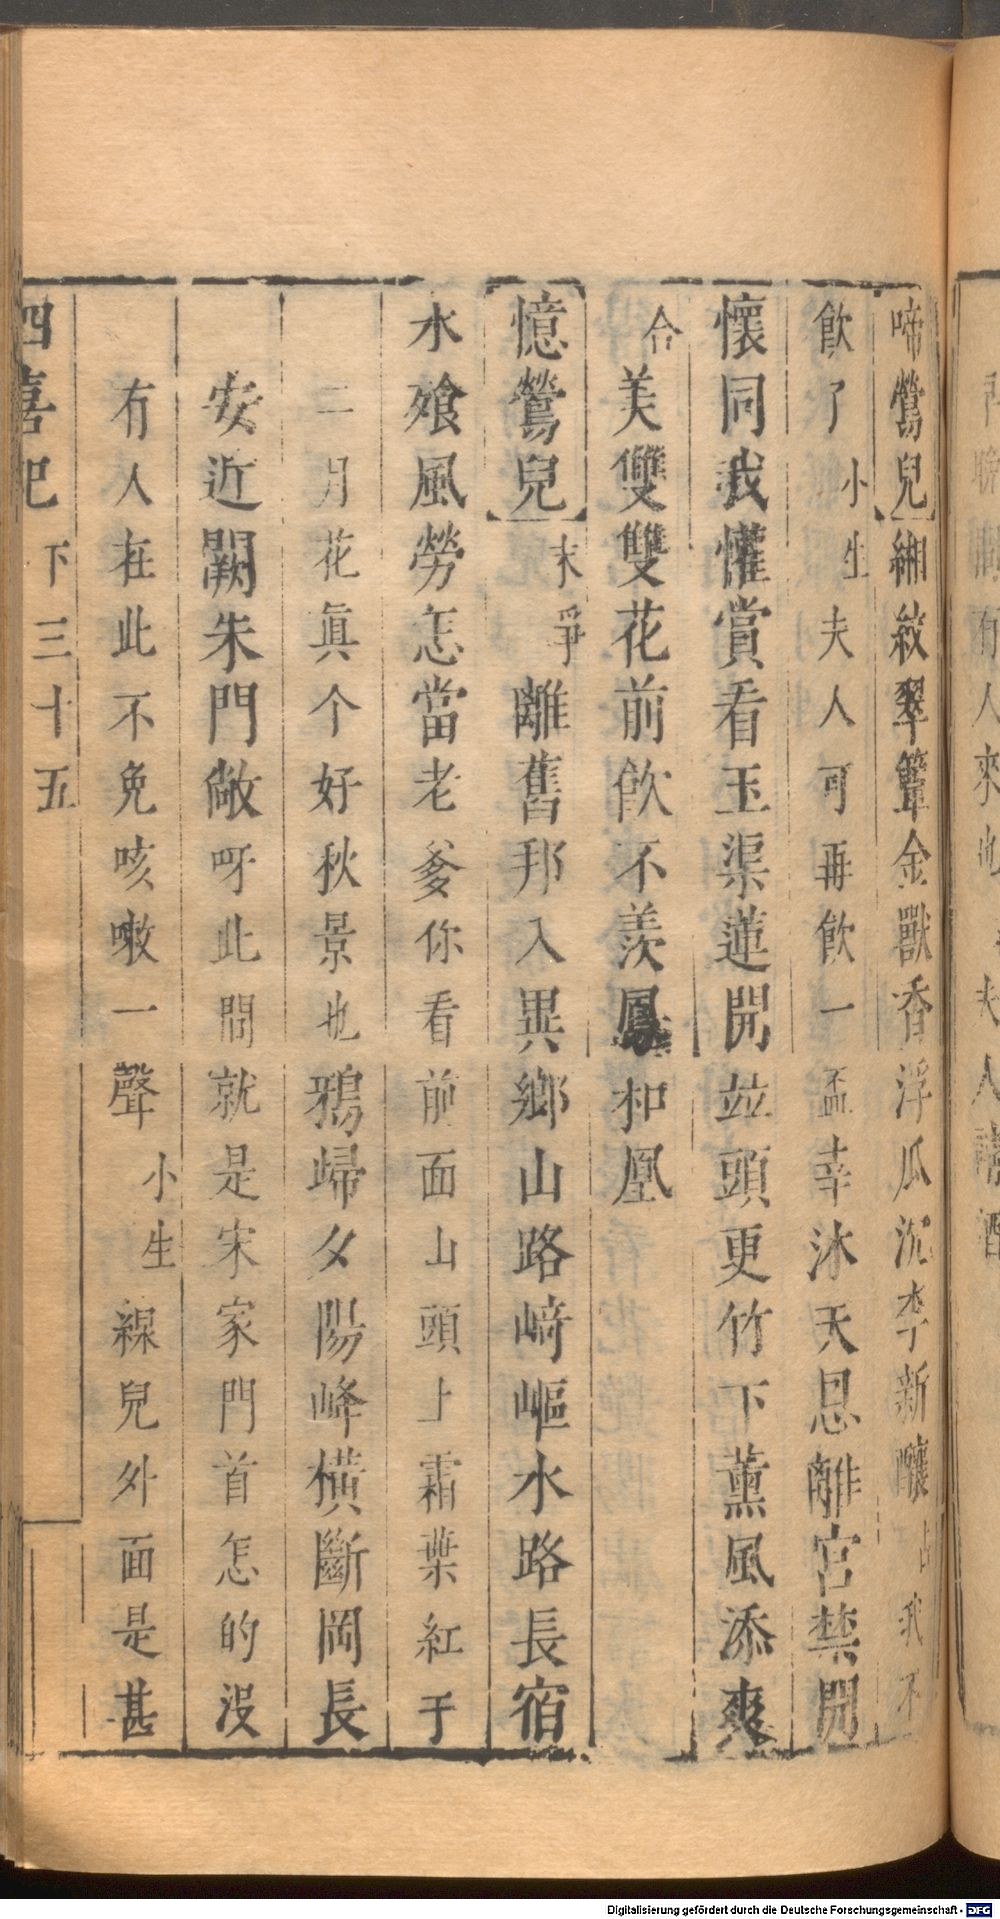 啼鶯兒緗紋翠簟金獸香浮瓜沉李新釀 占我不
飲了 小生夫人可再飲一盃幸沐天恩離宮禁開
懷同我懽賞看玉渠蓮開竝頭更竹下薰風添爽
合美雙雙花前飲不羨鳳和凰
憶鶯兒 末爭離舊邦入異鄉山路崎嶇水路長宿
水飡風勞怎當老爹你看前面山頭上霜葉紅于
二月花眞个好秋景也鴉歸夕陽峰橫斷岡長
安近闕朱門敞呀此間就是宋家門首怎的沒
有人在此不免咳嗽一聲 小生線兒外面是甚
四喜記 下 三十五
Digitalisierung gefördert durch die Deutsche Forschungsgemeinschaft - DFG